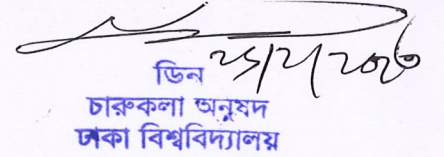 ডিন
চারুকলা অনুষদ
ঢাকা বিশ্ববিদ্যালয়